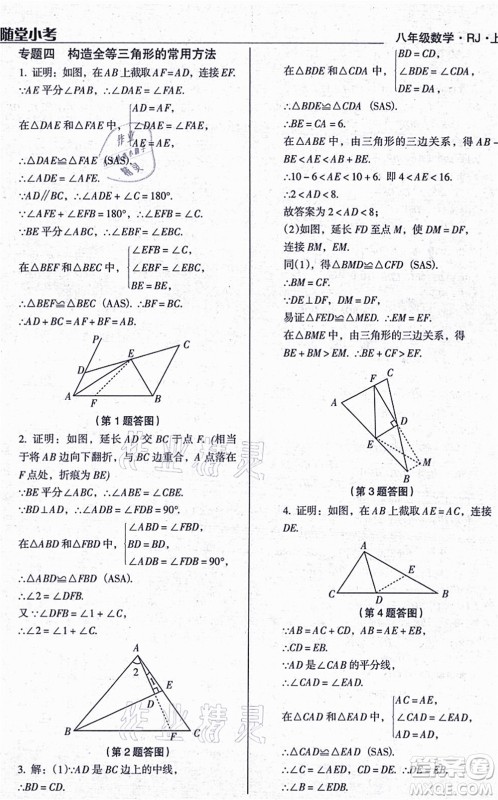 随堂小考
八年级数学·RJ·上
专题四 构造全等三角形的常用方法
1. 证明：如图，在AB上截取AF=AD，连接EF.
∵AE平分∠PAB，∴∠DAE=∠FAE.
在△DAE和△FAE中，
AD=AF，
∠DAE=∠FAE，
AE=AE，
∴△DAE≌△FAE (SAS).
∴∠AFE=∠ADE.
∵AD∥BC，∴∠ADE+∠C=180°.
∵∠AFE+∠EFB=180°，∴∠EFB=∠C.
∵BE平分∠ABC，∴∠EBF=∠EBC.
在△BEF和△BEC中，
∠EFB=∠C，
∠EBF=∠EBC，
BE=BE，
∴△BEF≌△BEC (AAS). ∴BF=BC.
∴AD+BC=AF+BF=AB.
P
E
C
D
A
F
B
(第1题答图)
2. 证明：如图，延长AD交BC于点F. (相当
于将AB边向下翻折，与BC边重合，A点落在
F点处，折痕为BE)
∵BE平分∠ABC，∴∠ABE=∠CBE.
∵BD⊥AD，∴∠ADB=∠BDF=90°.
在△ABD和△FBD中，
∠ABD=∠FBD，
BD=BD，
∠ADB=∠FDB=90°，
∴△ABD≌△FBD (ASA).
∴∠2=∠DFB.
又∵∠DFB=∠1+∠C，
∴∠2=∠1+∠C.
A
2
1
E
D
B
F
C
(第2题答图)
3. 解：(1)∵AD是BC边上的中线，
∴BD=CD.
在△BDE和△CDA中，
BD=CD，
∠BDE=∠CDA，
DE=DA，
∴△BDE≌△CDA (SAS).
∴BE=CA=6.
在△ABE中，由三角形的三边关系，得AB-
BE<AE<AB+BE，
∴10-6<AE<10+6. 即4<AE<16.
∴2<AD<8.
故答案为2<AD<8；
(2)如图，延长FD至点M，使DM=DF，
连接BM，EM.
同(1)，得△BMD≌△CFD (SAS).
∴BM=CF.
∵DE⊥DF，DM=DF，
易证△FED≌△MED. ∴EM=EF.
在△BME中，由三角形的三边关系，得
BE+BM>EM，∴BE+CF>EF.
F
C
A
D
E
M
B
(第3题答图)
4. 证明：如图，在AB上截取AE=AC，连接
DE.
A
E
C
D
B
(第4题答图)
∵AB=AC+CD，AB=AE+EB，
∴CD=EB.
∵AD是∠CAB的平分线，
∴∠CAD=∠EAD.
在△CAD和△EAD中，
AC=AE，
∠CAD=∠EAD，
AD=AD，
∴△CAD≌△EAD (SAS).
∴CD=DE，∠C=∠AED.
作业精灵
作业精灵
答案圈
MXQE.COM